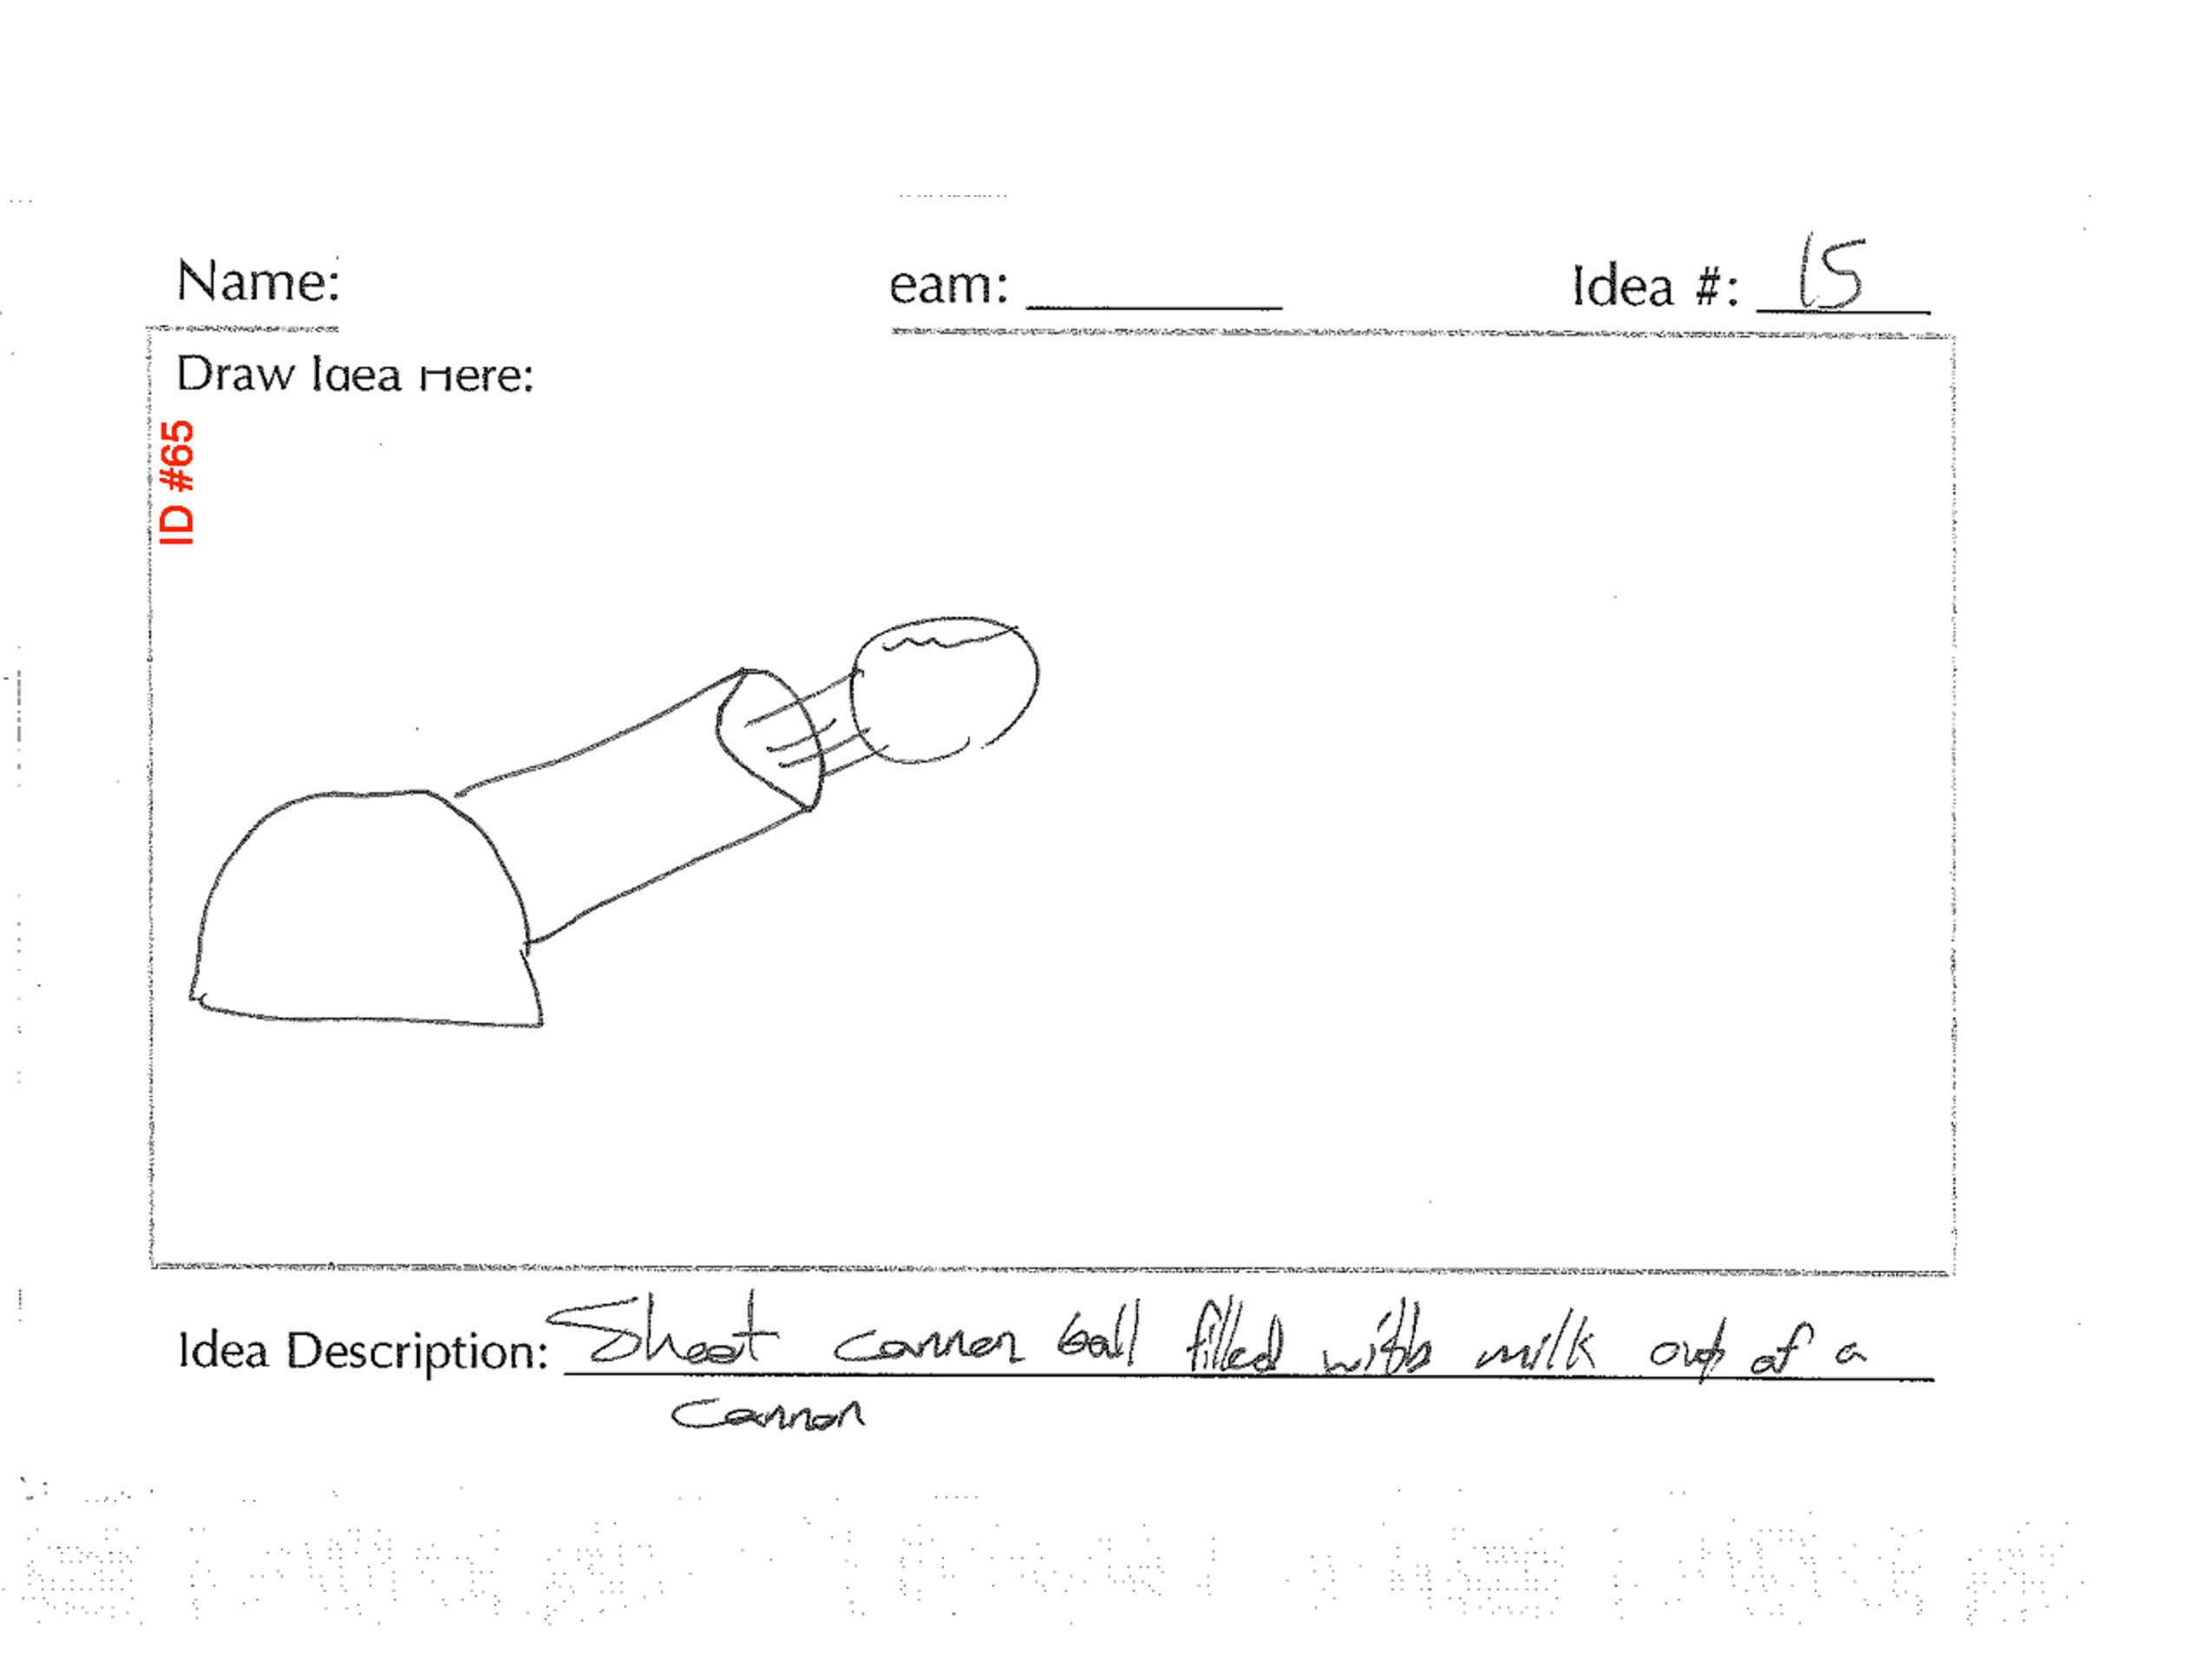 Name:
eam:
Idea #: 15
Draw Idea Here:
ID #65
Idea Description: Shoot cannon ball filled with milk out of a
cannon